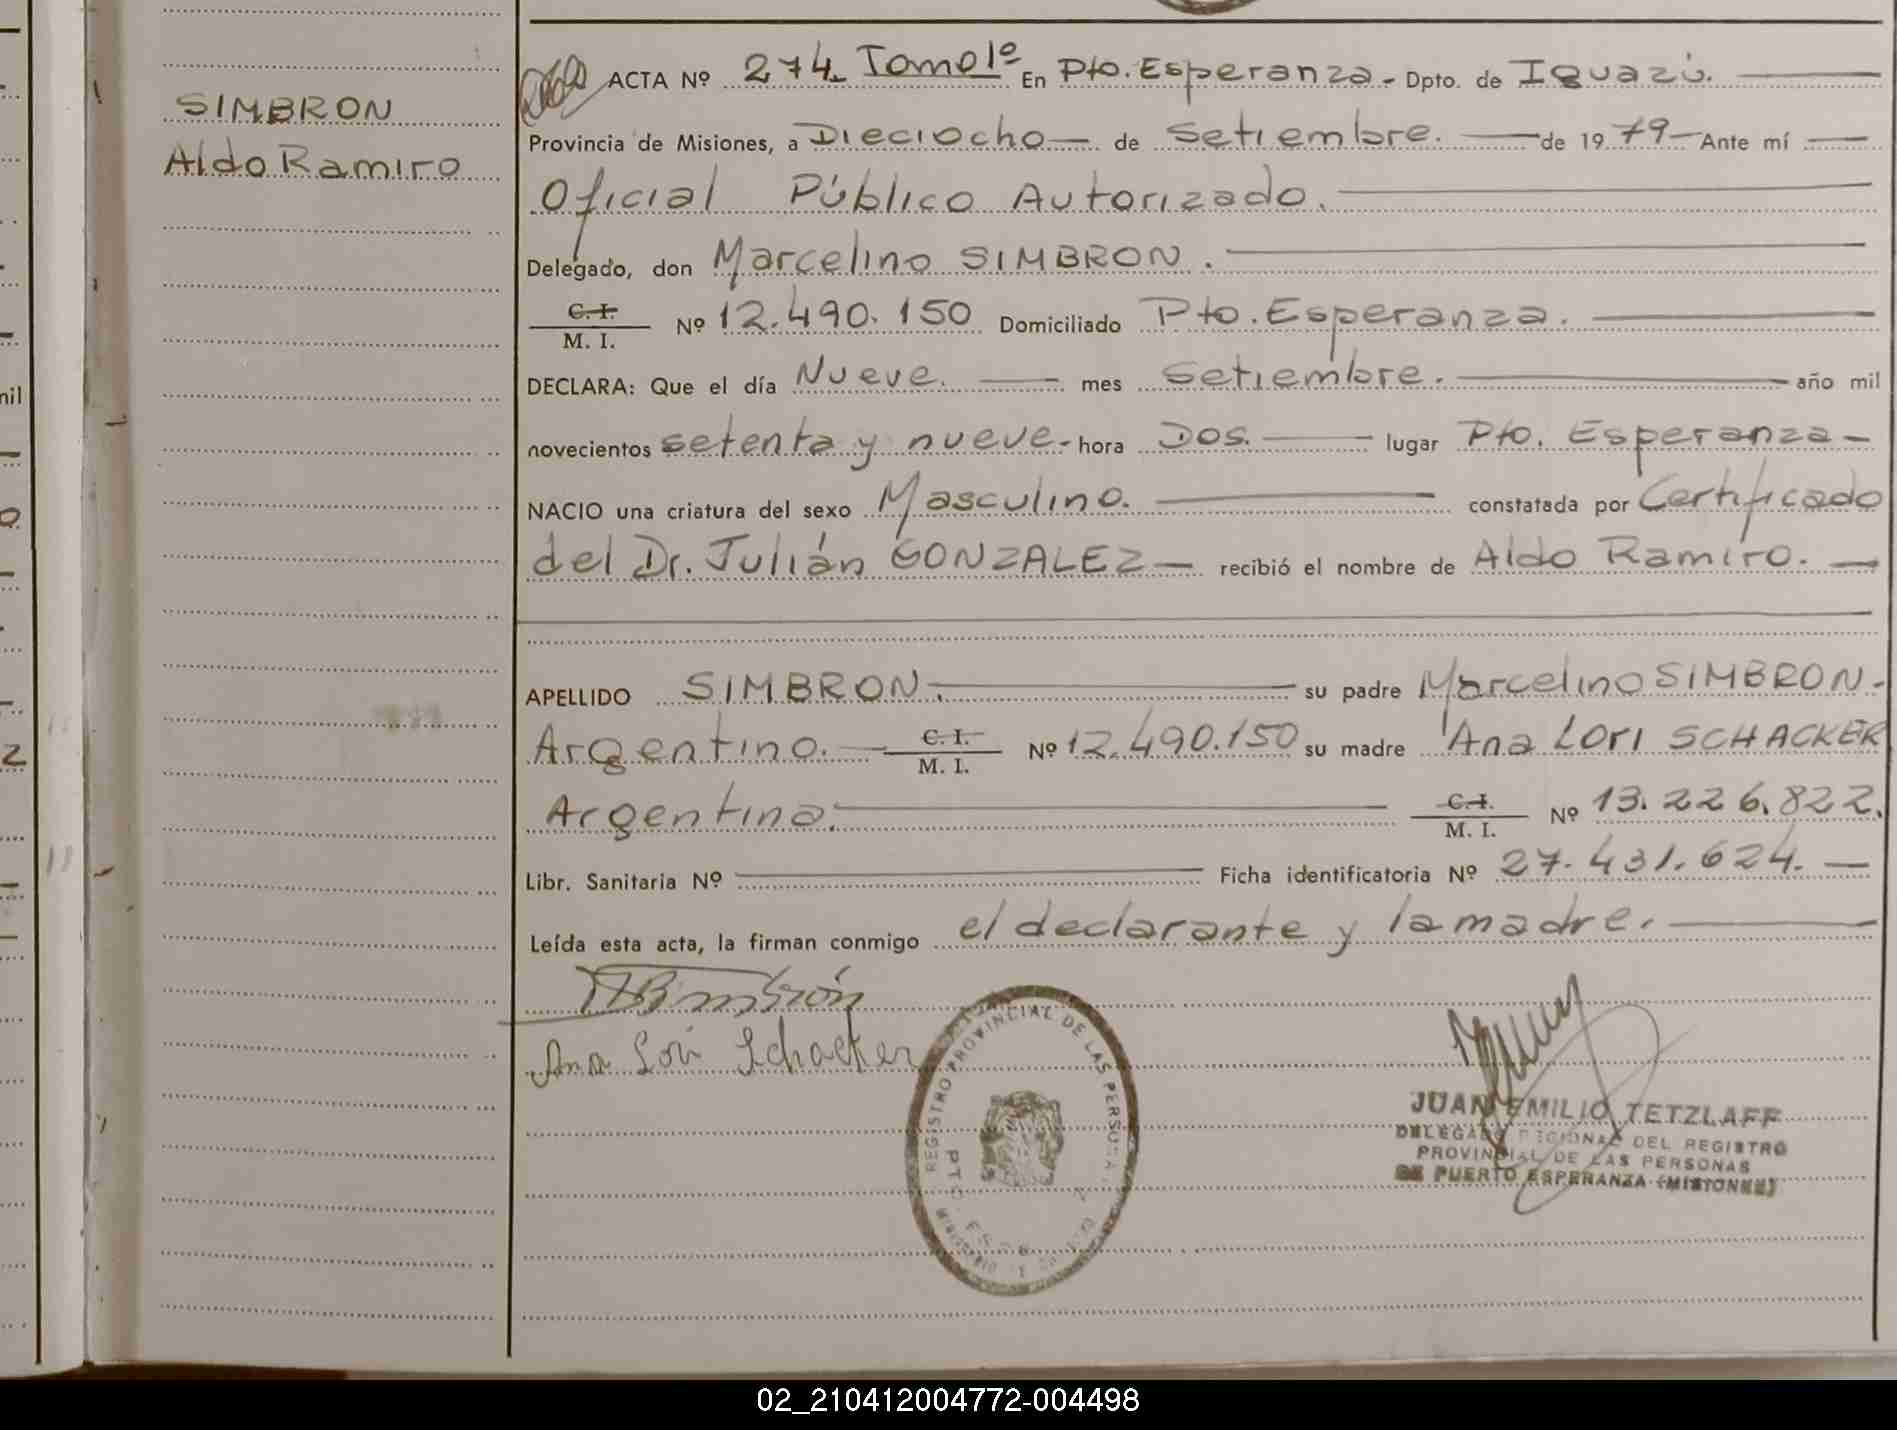 SIMBRON
Aldo Ramiro
ACTA Nº 274. Tomo 1º En Pto. Esperanza - Dpto. de Iguazú.
Provincia de Misiones, a Dieciocho — de Setiembre. — de 1979 — Ante mí —
Oficial Público Autorizado.
Delegado, don Marcelino SIMBRON.
C. I.
M. I. Nº 12.490.150 Domiciliado Pto. Esperanza.
DECLARA: Que el día Nueve. — mes Setiembre. — año mil
novecientos setenta y nueve - hora Dos. — lugar Pto. Esperanza -
NACIO una criatura del sexo Masculino. — constatada por Certificado
del Dr. Julián GONZALEZ — recibió el nombre de Aldo Ramiro. —
APELLIDO SIMBRON. — su padre Marcelino SIMBRON -
Argentino. — C. I.
M. I. Nº 12.490.150 su madre Ana LORI SCHACKER
Argentina. — C. I.
M. I. Nº 13.226.822.
Libr. Sanitaria Nº — Ficha identificatoria Nº 27.431.624. —
Leída esta acta, la firman conmigo el declarante y la madre. —
Ana Lori Schacker
REGISTRO PROVINCIAL DE LAS PERSONAS
JUAN EMILIO TETZLAFF
DELEGADO REGIONAL DEL REGISTRO
PROVINCIAL DE LAS PERSONAS
DE PUERTO ESPERANZA (MISIONES)
02_210412004772-004498